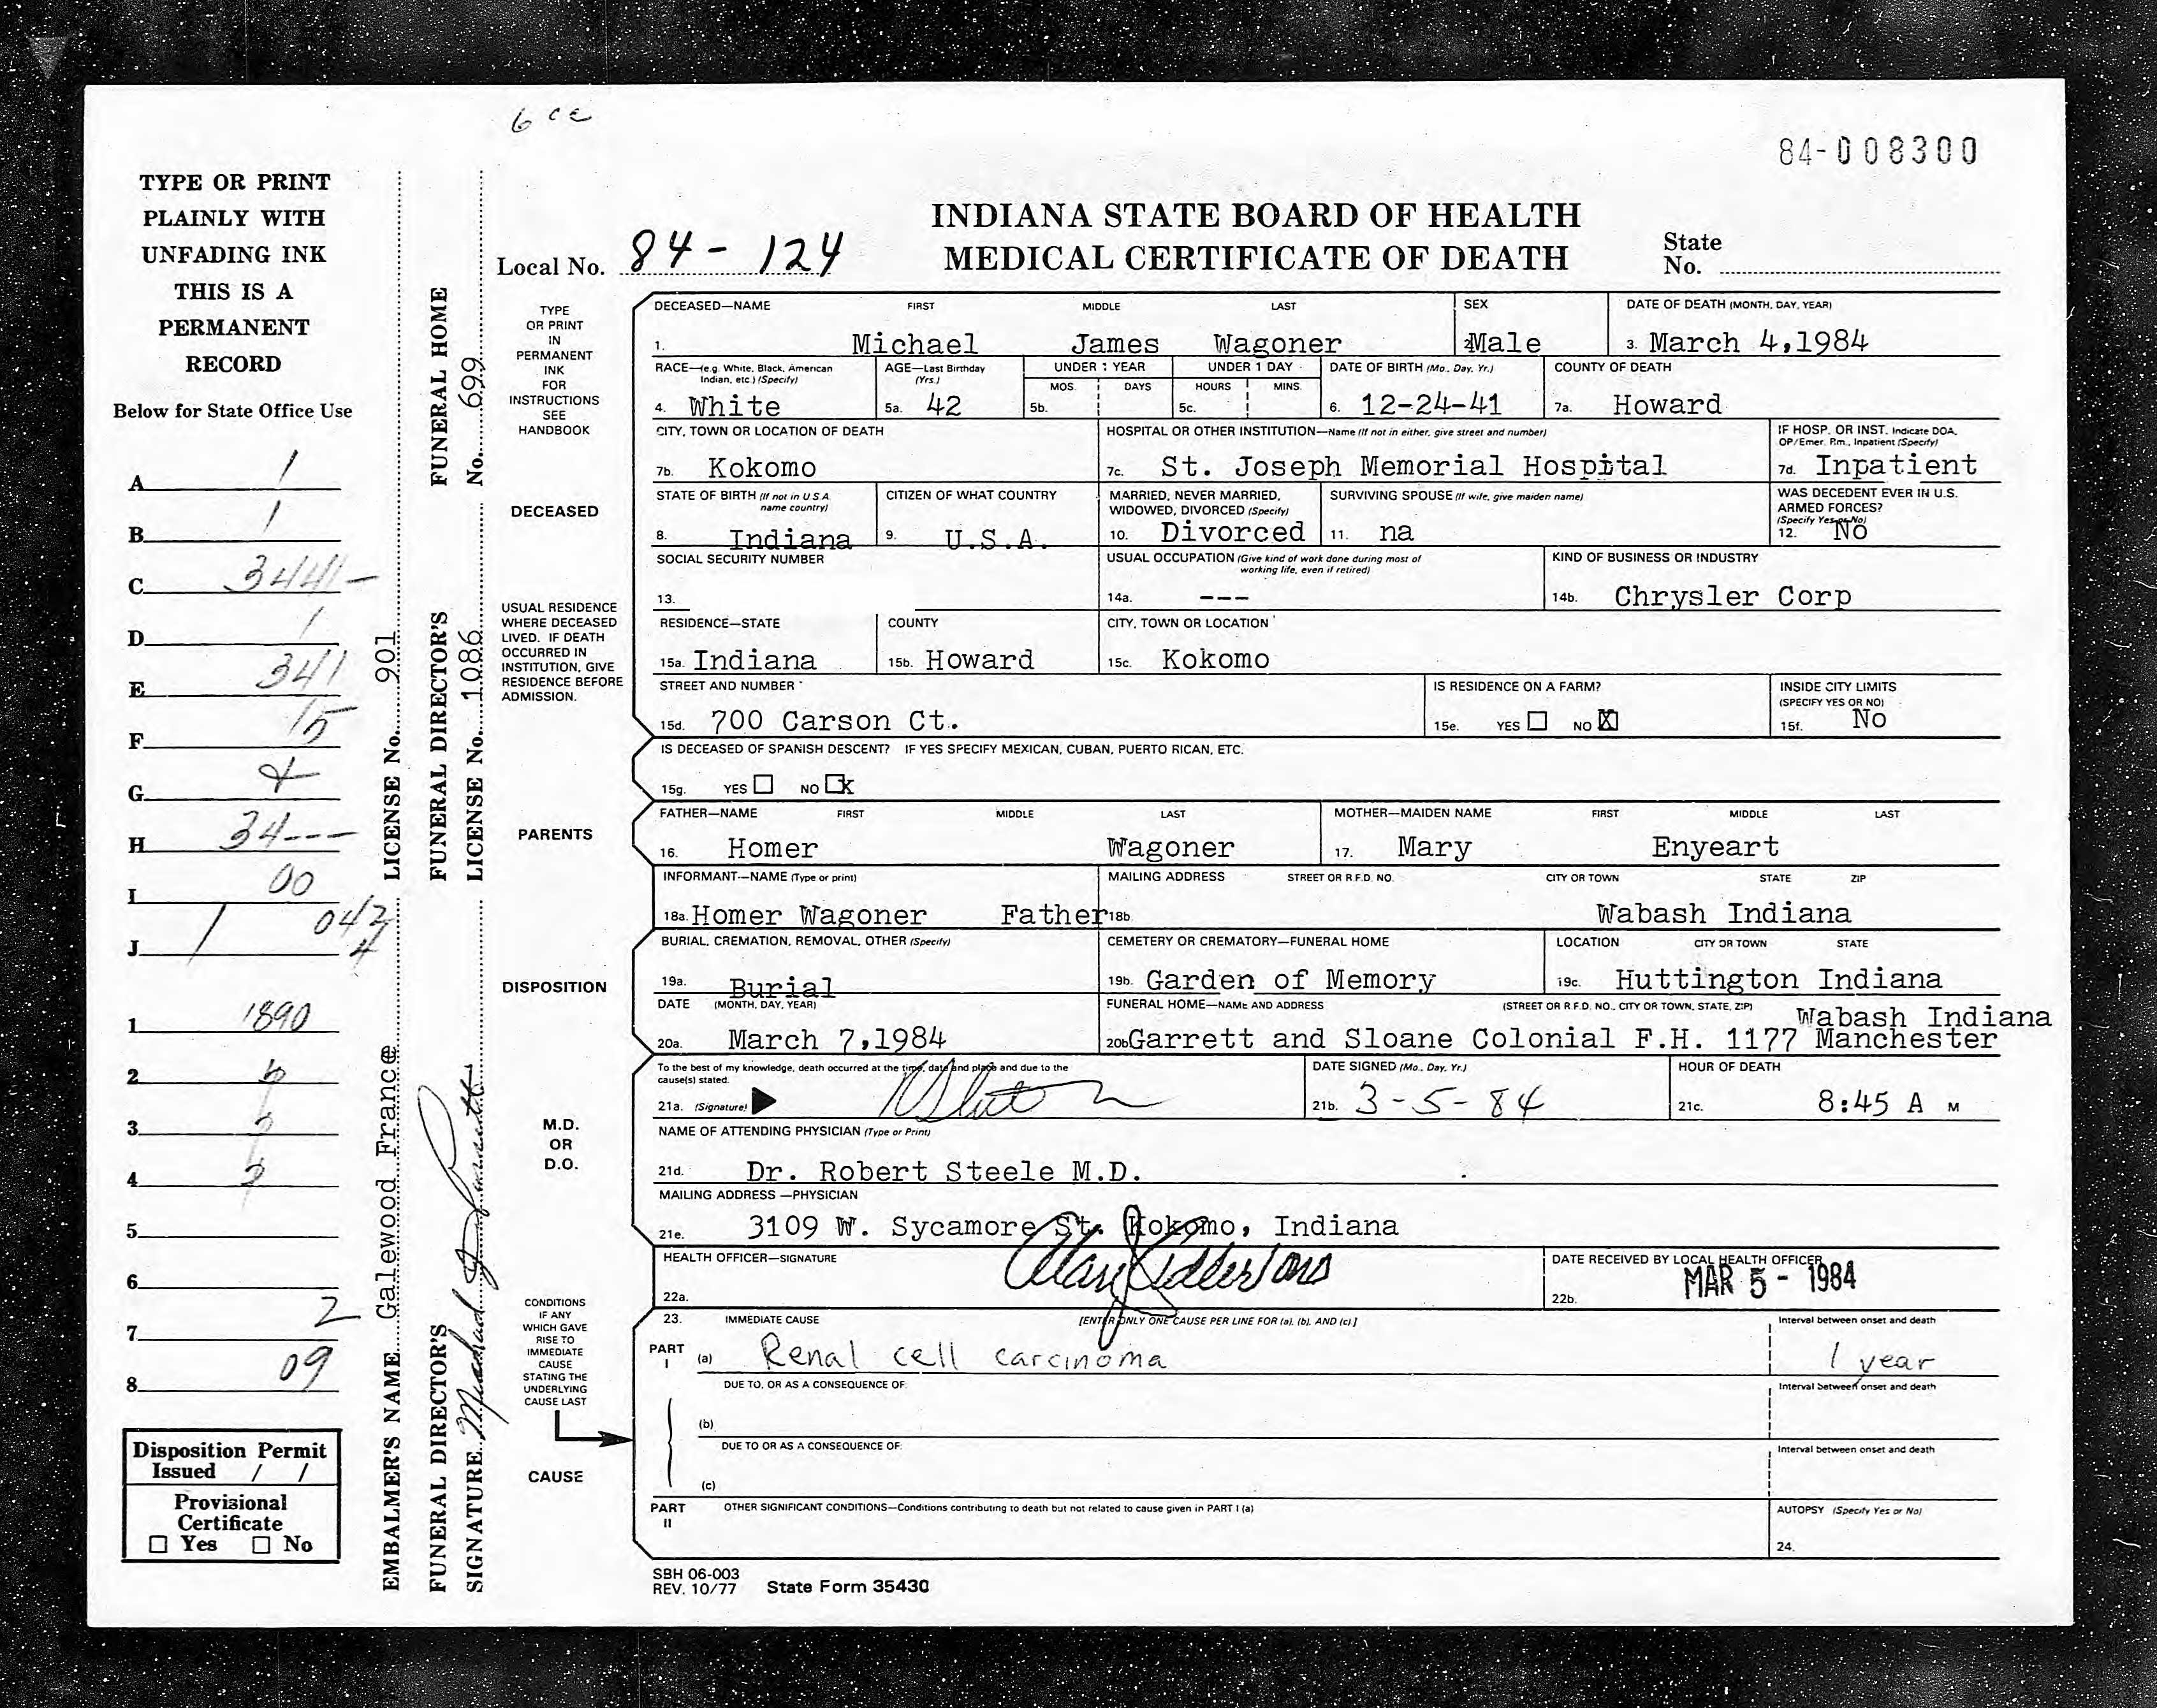 6 cc
84-008300
TYPE OR PRINT
PLAINLY WITH
UNFADING INK
THIS IS A
PERMANENT
RECORD
Below for State Office Use
A 1
B 1
C 3441-
D 1
E 341
F 15
G
H 34---
I 00
J 1 042
4
1 1890
2
3
4
5
6
7 2
8 09
Disposition Permit
Issued / /
Provisional
Certificate
☐ Yes ☐ No
EMBALMER'S NAME Galewood France LICENSE No. 901
FUNERAL DIRECTOR'S FUNERAL DIRECTOR'S FUNERAL HOME
SIGNATURE Michael Garrett LICENSE No. 1086 No. 699
INDIANA STATE BOARD OF HEALTH
MEDICAL CERTIFICATE OF DEATH
Local No. 84-124
State
No.
TYPE
OR PRINT
IN
PERMANENT
INK
FOR
INSTRUCTIONS
SEE
HANDBOOK
DECEASED—NAME FIRST MIDDLE LAST SEX DATE OF DEATH (MONTH, DAY, YEAR)
1. Michael James Wagoner 2. Male 3. March 4,1984
RACE—(e.g. White, Black, American Indian, etc.) (Specify) AGE—Last Birthday (Yrs.) UNDER 1 YEAR UNDER 1 DAY DATE OF BIRTH (Mo., Day, Yr.) COUNTY OF DEATH
MOS. DAYS HOURS MINS.
4. White 5a. 42 5b. 5c. 6. 12-24-41 7a. Howard
CITY, TOWN OR LOCATION OF DEATH HOSPITAL OR OTHER INSTITUTION—Name (If not in either, give street and number) IF HOSP. OR INST. Indicate DOA, OP/Emer. Rm., Inpatient (Specify)
7b. Kokomo 7c. St. Joseph Memorial Hospital 7d. Inpatient
DECEASED
STATE OF BIRTH (If not in U.S.A. name country) CITIZEN OF WHAT COUNTRY MARRIED, NEVER MARRIED, WIDOWED, DIVORCED (Specify) SURVIVING SPOUSE (If wife, give maiden name) WAS DECEDENT EVER IN U.S. ARMED FORCES? (Specify Yes or No)
8. Indiana 9. U.S.A. 10. Divorced 11. na 12. No
SOCIAL SECURITY NUMBER USUAL OCCUPATION (Give kind of work done during most of working life, even if retired) KIND OF BUSINESS OR INDUSTRY
13. 14a. --- 14b. Chrysler Corp
USUAL RESIDENCE
WHERE DECEASED
LIVED. IF DEATH
OCCURRED IN
INSTITUTION, GIVE
RESIDENCE BEFORE
ADMISSION.
RESIDENCE—STATE COUNTY CITY, TOWN OR LOCATION
15a. Indiana 15b. Howard 15c. Kokomo
STREET AND NUMBER IS RESIDENCE ON A FARM? INSIDE CITY LIMITS (SPECIFY YES OR NO)
15d. 700 Carson Ct. 15e. YES ☐ NO ☒ 15f. No
IS DECEASED OF SPANISH DESCENT? IF YES SPECIFY MEXICAN, CUBAN, PUERTO RICAN, ETC.
15g. YES ☐ NO ☒
PARENTS
FATHER—NAME FIRST MIDDLE LAST MOTHER—MAIDEN NAME FIRST MIDDLE LAST
16. Homer Wagoner 17. Mary Enyeart
INFORMANT—NAME (Type or print) MAILING ADDRESS STREET OR R.F.D. NO. CITY OR TOWN STATE ZIP
18a. Homer Wagoner Father 18b. Wabash Indiana
DISPOSITION
BURIAL, CREMATION, REMOVAL, OTHER (Specify) CEMETERY OR CREMATORY—FUNERAL HOME LOCATION CITY OR TOWN STATE
19a. Burial 19b. Garden of Memory 19c. Huttington Indiana
DATE (MONTH, DAY, YEAR) FUNERAL HOME—NAME AND ADDRESS (STREET OR R.F.D. NO., CITY OR TOWN, STATE, ZIP) Wabash Indiana
20a. March 7,1984 20b Garrett and Sloane Colonial F.H. 1177 Manchester
M.D.
OR
D.O.
To the best of my knowledge, death occurred at the time, date and place and due to the cause(s) stated. DATE SIGNED (Mo., Day, Yr.) HOUR OF DEATH
21a. (Signature) 21b. 3-5-84 21c. 8:45 A M
NAME OF ATTENDING PHYSICIAN (Type or Print)
21d. Dr. Robert Steele M.D.
MAILING ADDRESS —PHYSICIAN
21e. 3109 W. Sycamore St. Kokomo, Indiana
HEALTH OFFICER—SIGNATURE DATE RECEIVED BY LOCAL HEALTH OFFICER
22a. 22b. MAR 5 - 1984
CONDITIONS
IF ANY
WHICH GAVE
RISE TO
IMMEDIATE
CAUSE
STATING THE
UNDERLYING
CAUSE LAST
CAUSE
23. IMMEDIATE CAUSE [ENTER ONLY ONE CAUSE PER LINE FOR (a), (b), AND (c)] Interval between onset and death
PART I (a) Renal cell carcinoma 1 year
DUE TO, OR AS A CONSEQUENCE OF: Interval between onset and death
(b)
DUE TO OR AS A CONSEQUENCE OF: Interval between onset and death
(c)
PART II OTHER SIGNIFICANT CONDITIONS—Conditions contributing to death but not related to cause given in PART I (a) AUTOPSY (Specify Yes or No)
24.
SBH 06-003
REV. 10/77 State Form 35430